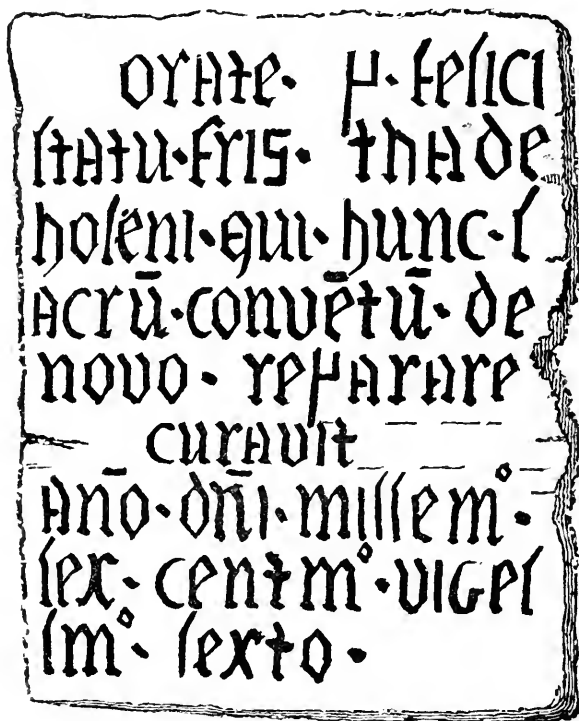 orate · p · felici
statu · fris · thade
holeni · qui · hunc · s
acrū · convētū · de
novo · reparare
curavit
Ano̅ · dn̅i · millemº ·
sex · centmº · viges
smº · sexto ·